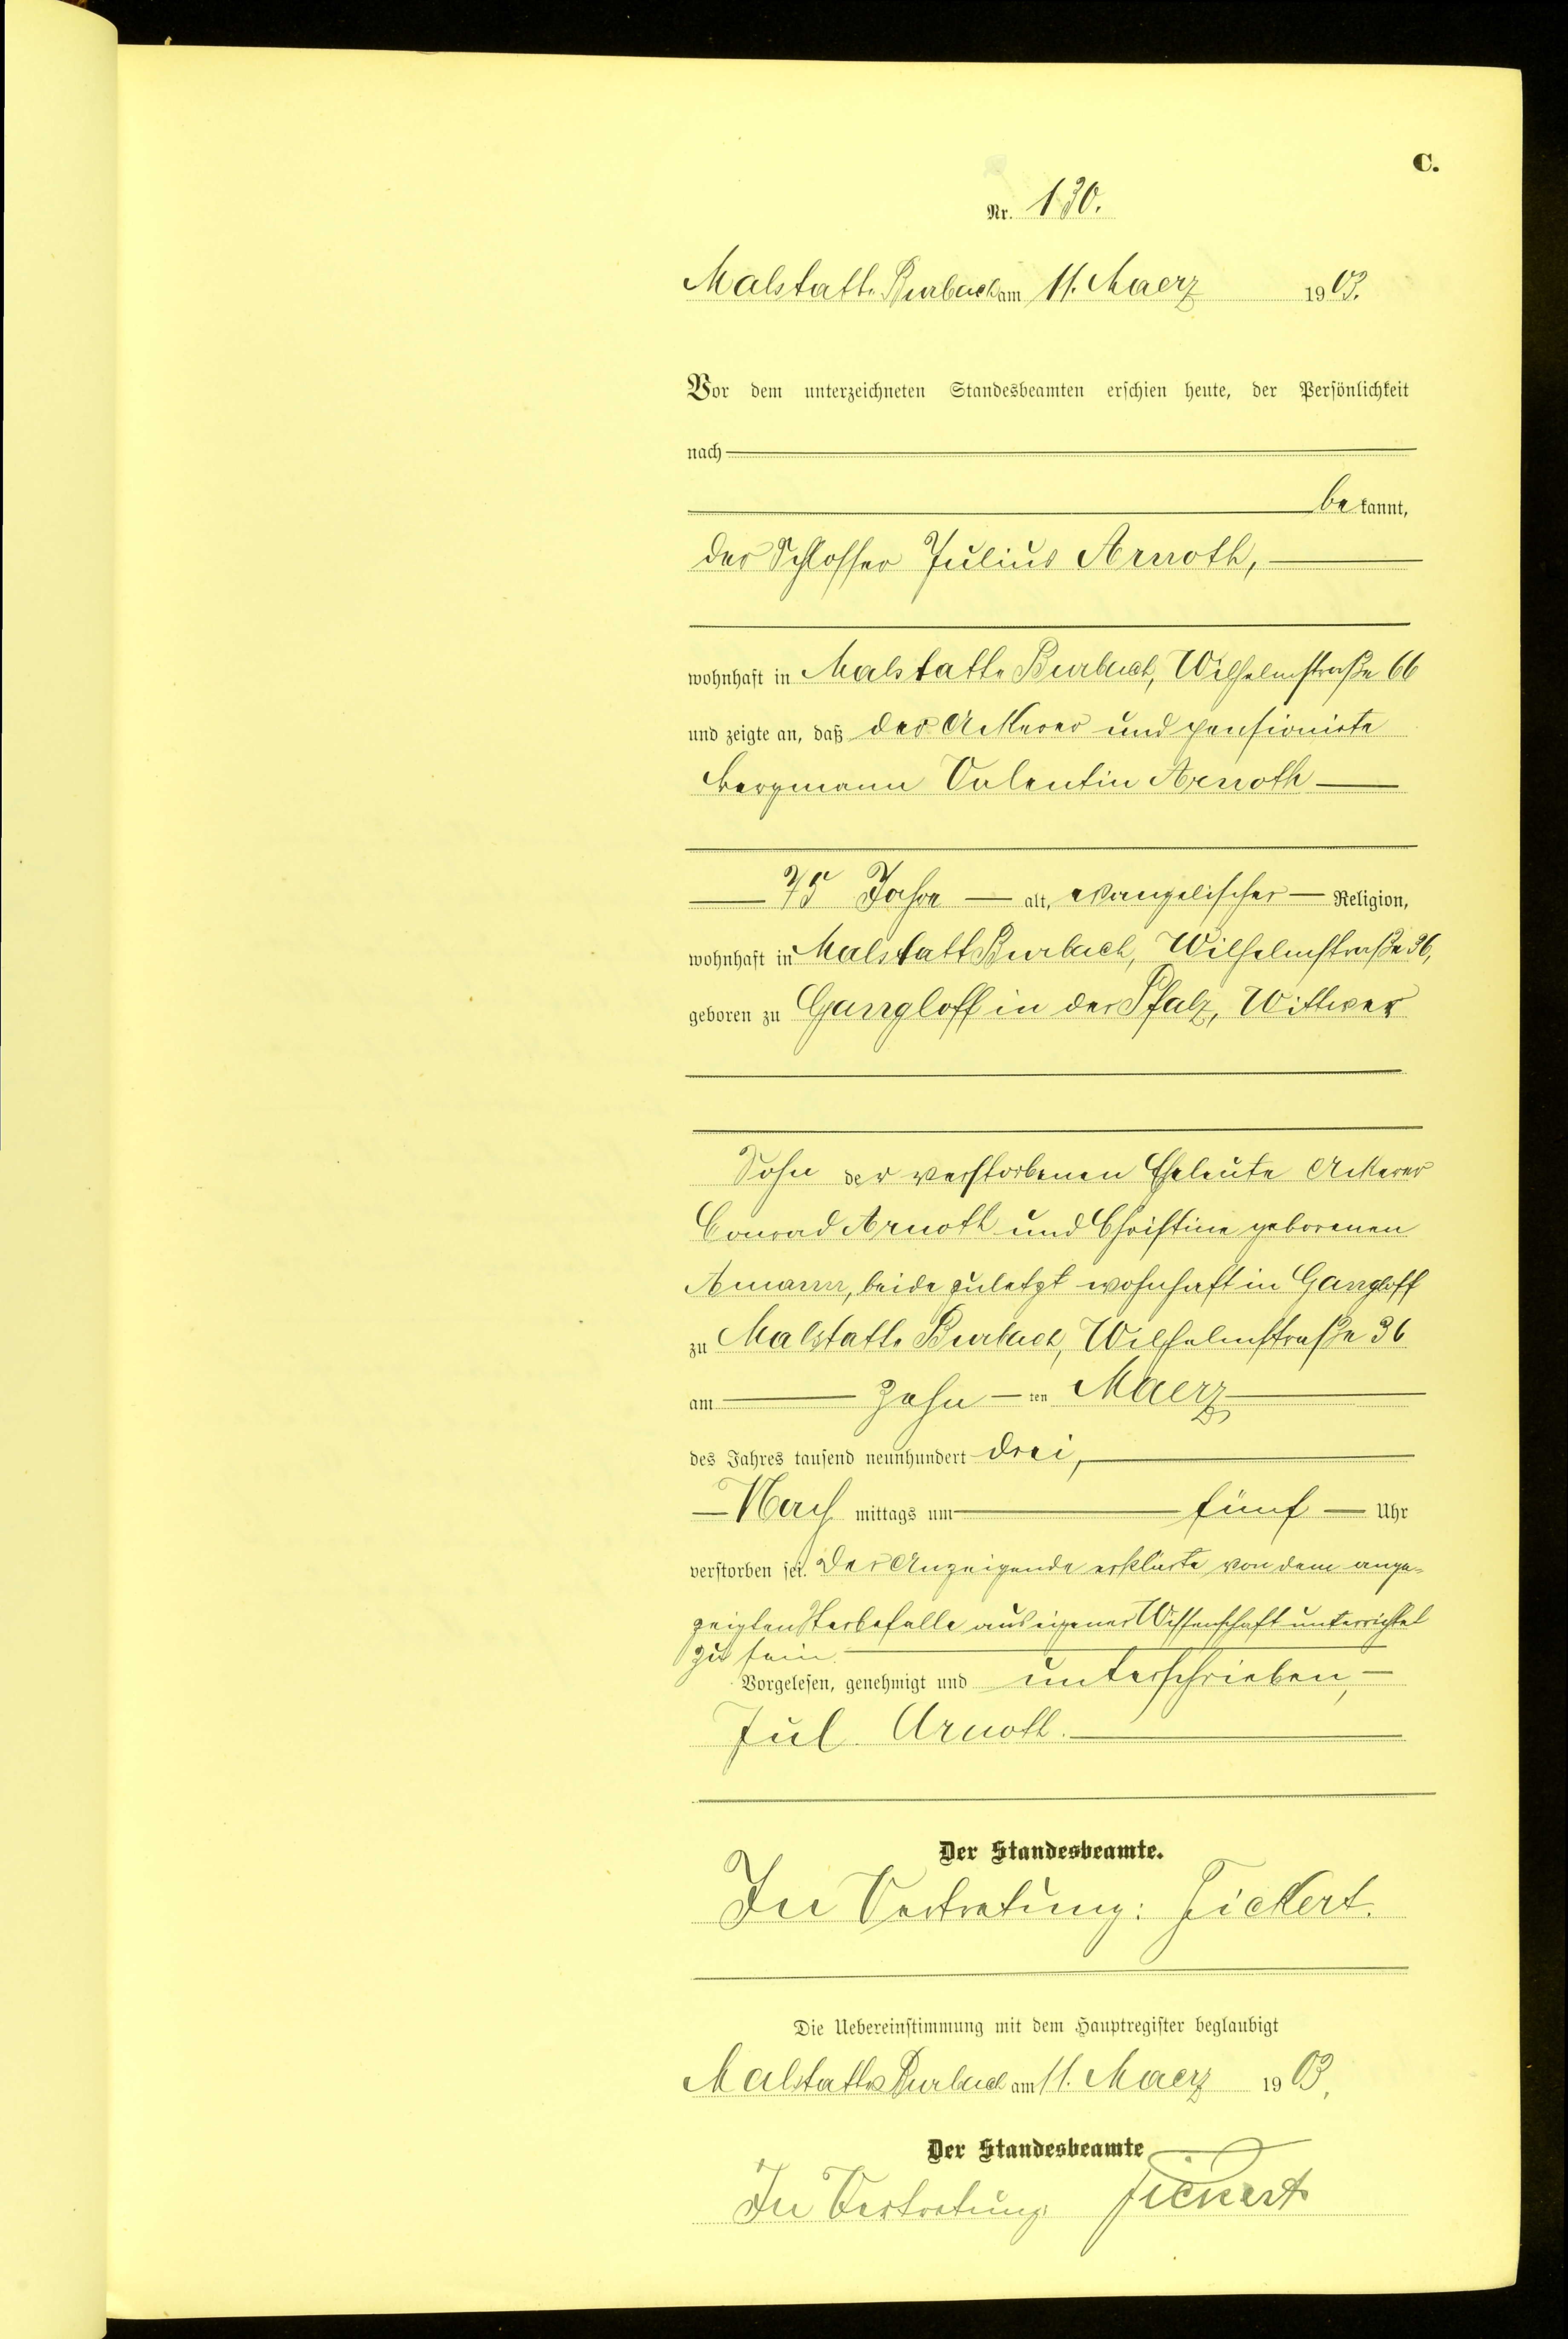 C.
Nr. 130.
Malstatt-Burbach am 11. Maerz 1903.
Vor dem unterzeichneten Standesbeamten erschien heute, der Persönlichkeit
nach
bekannt,
der Schlosser Julius Arnoth,
wohnhaft in Malstatt-Burbach, Wilhelmstraße 66
und zeigte an, daß der Ackerer und pensionirte
Bergmann Valentin Arnoth
75 Jahre alt, evangelischer Religion,
wohnhaft in Malstatt Burbach, Wilhelmstraße 36,
geboren zu Gangloff in der Pfalz, Wittwer
Sohn der verstorbenen Eheleute Ackerer
Conrad Arnoth und Christine geborenen
Amann, beide zuletzt wohnhaft in Gangloff
zu Malstatt-Burbach, Wilhelmstraße 36
am zehnten Maerz
des Jahres tausend neunhundert drei,
Nachmittags um fünf Uhr
verstorben sei. Der Anzeigende erklärte von dem ange-
zeigten Sterbefalle aus eigener Wissenschaft unterrichtet
zu sein.
Vorgelesen, genehmigt und unterschrieben,
Jul. Arnoth.
Der Standesbeamte.
In Vertretung: Fickert.
Die Uebereinstimmung mit dem Hauptregister beglaubigt
Malstatt-Burbach am 11. Maerz 1903.
Der Standesbeamte
In Vertretung: Fickert